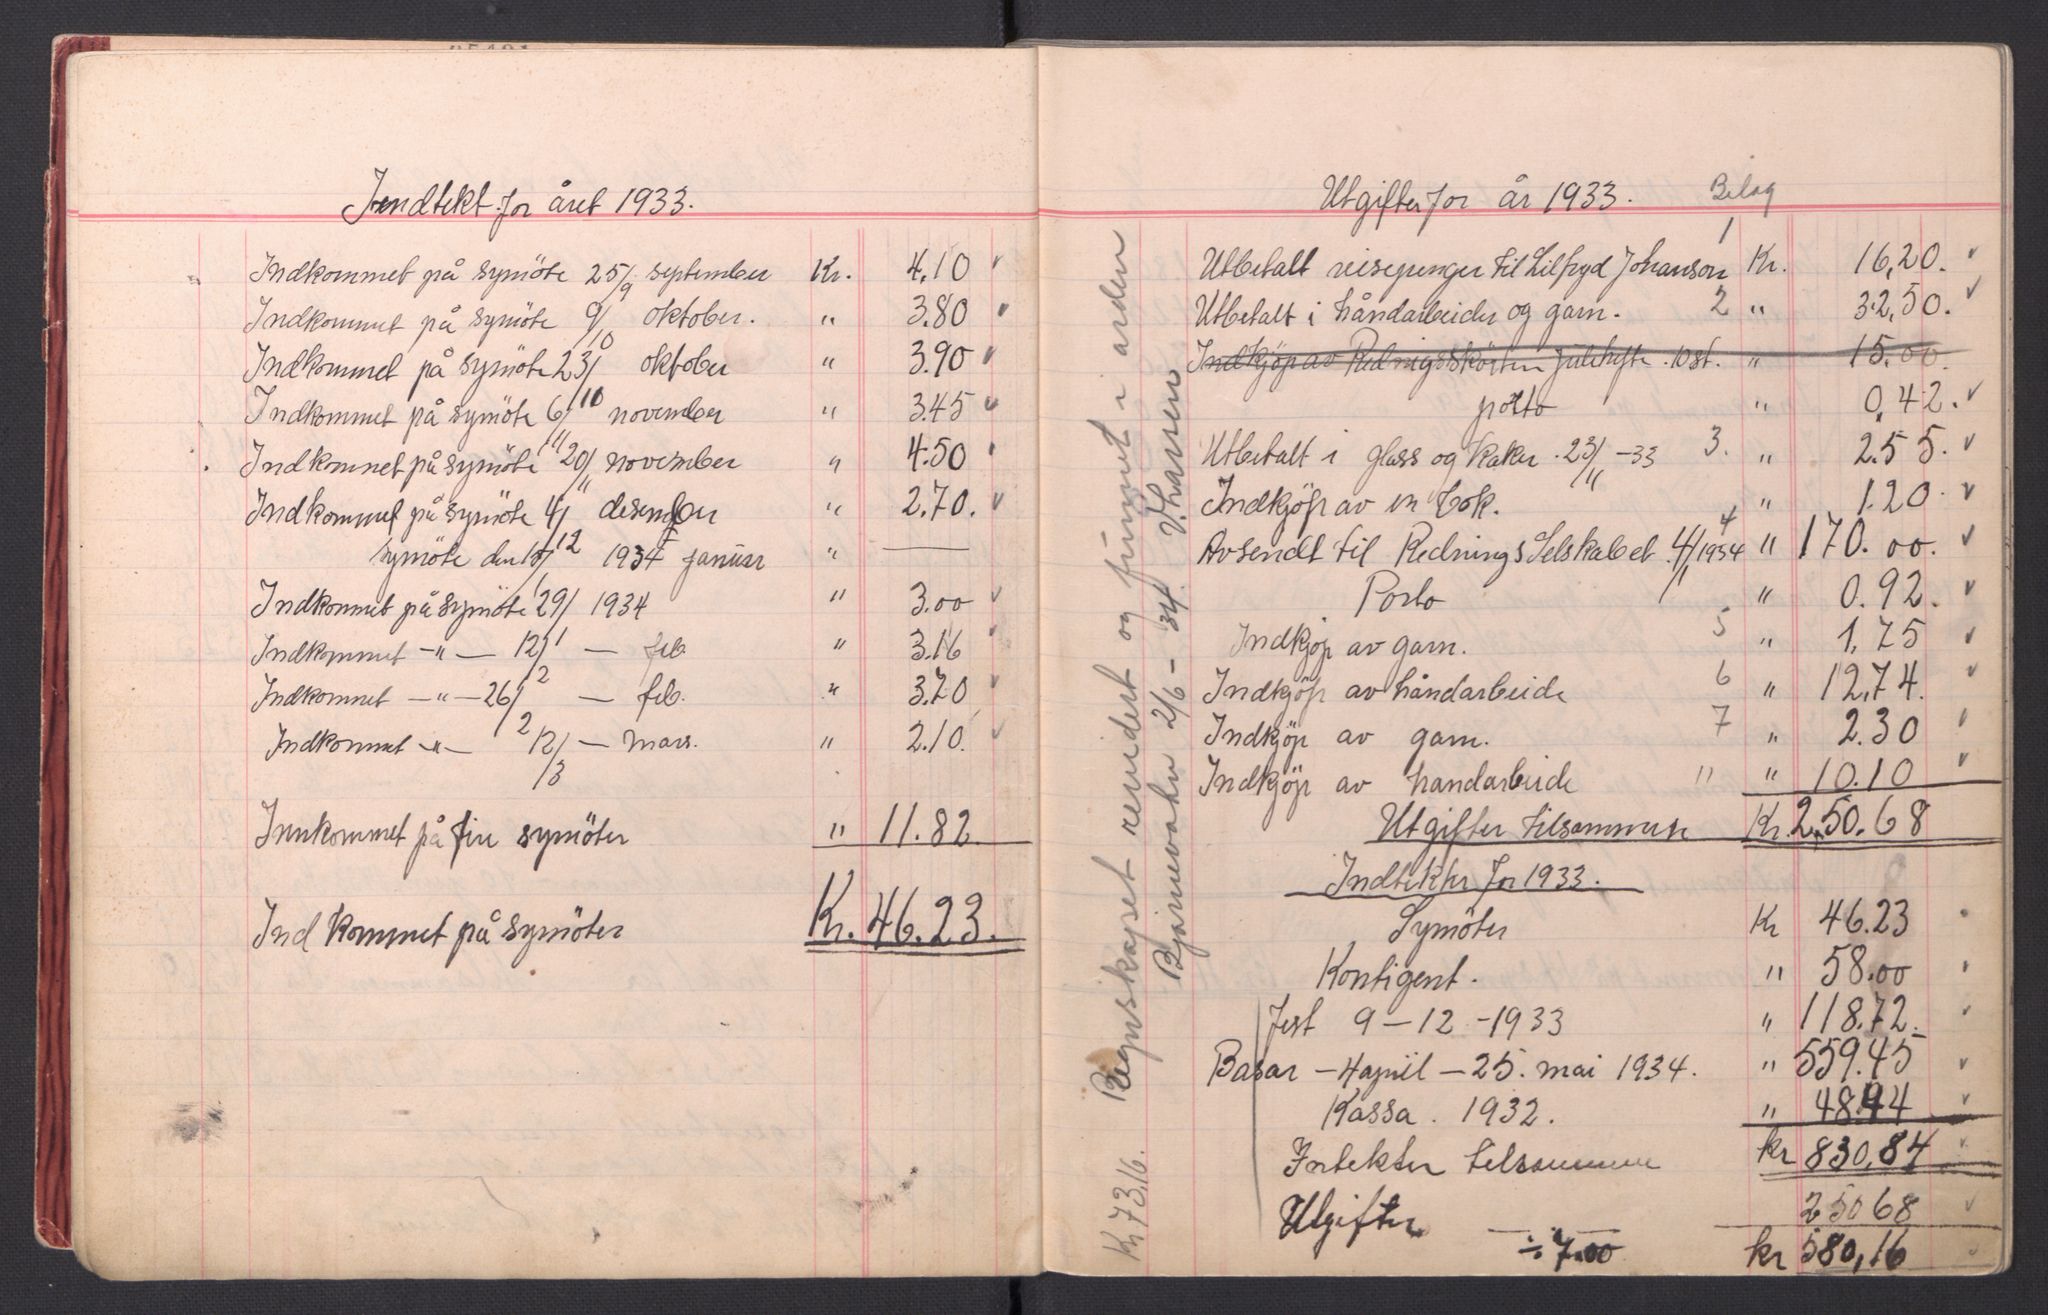 Indtekt for året 1933.
Indkommet på symöte 25/9 september Kr. 4.10
Indkommet på symöte 9/10 oktober. " 3.80
Indkommet på symöte 23/10 oktober " 3.90
Indkommet på symöte 6/11 november " 3.45
Indkommet på symöte 20/11 november " 4.50
Indkommet på symöte 4/12 desember " 2.70.
symöte den 15/1 1934 januar " —
Indkommet på symöte 29/1 1934 " 3.00
Indkommet -"- 12/2 - feb " 3.16
Indkommet -"- 26/2 - feb. " 3.70
Indkommet -"- 12/3 - mars. " 2.10.
Innkommet på fire symöter " 11.82
Ind kommet på symöter Kr. 46.23.
Regnskapet revidert og funnet i orden
Bjarnevakn 2/6 - 34. Th. Hansen
Kr 73,16.
Utgifter for år 1933. Bilag
Utbetalt reisepenger til Lilfryd Johanson 1 Kr. 16,20.
Utbetalt i håndarbeider og garn. 2 " 32,50.
Indkjöp av Redningsskövten julehefte. 10 st. " 15.00
porto " 0,42.
Utbetalt i glass og kaker. 23/11 -33 3. " 2.55.
Indkjöp av en bok. " 1.20
Avsendt til RedningsSelskabet. 4/1 1934 4 " 170.00.
Porto " 0.92.
Indkjöp av garn. 5 " 1,75
Indkjöp av håndarbeide 6 " 12,74.
Indkjöp av garn. 7 " 2.30
Indkjöp av handarbeide " " 10.10
Utgifter tilsammen Kr. 250.68
Indtekter for 1933.
Symöter Kr 46.23
Kontigent. " 58.00
Fest 9-12-1933 " 118.72
Basar - 4 april - 25. mai 1934. " 559.45
Kassa. 1932. " 48.44
Intekter tilsammen kr 830,84
Utgifter 25068
÷ 7.00 kr 580,16